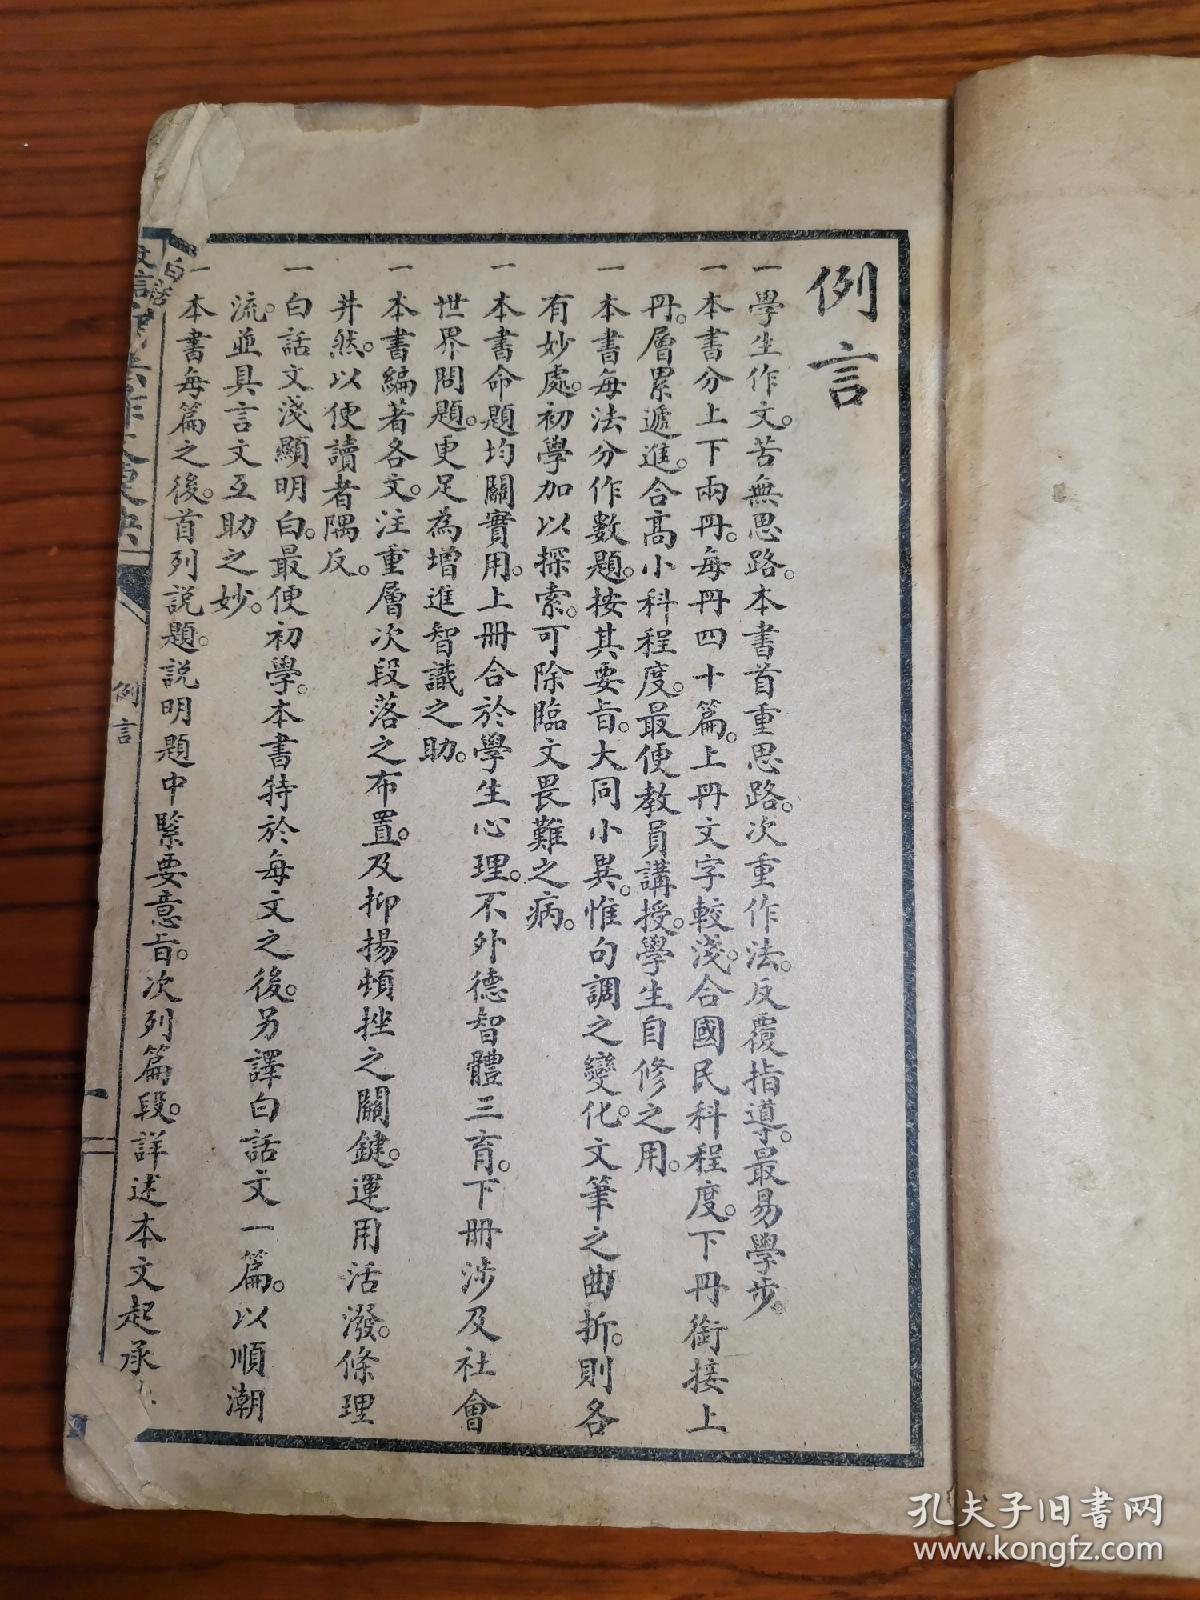 例言
一學生作文。苦無思路。本書首重思路。次重作法。反覆指導。最易學步。
一本書分上下兩冊。每冊四十篇。上冊文字較淺。合國民科程度。下冊銜接上
冊。層累遞進。合高小科程度。最便教員講授。學生自修之用。
一本書每法分作數題。按其要旨。大同小異。惟句調之變化。文筆之曲折。則各
有妙處。初學加以探索。可除臨文畏難之病。
一本書命題均關實用。上冊合於學生心理。不外德智體三育。下冊涉及社會
世界問題。更足為增進智識之助。
一本書編著各文。注重層次段落之布置。及抑揚頓挫之關鍵。運用活潑。條理
井然。以便讀者隅反。
一白話文淺顯明白。最便初學。本書特於每文之後。另譯白話文一篇。以順潮
流。並具言文互助之妙。
一本書每篇之後。首列說題。說明題中緊要意旨。次列篇段。詳述本文起承
白話
例言
一
孔夫子旧书网
www.kongfz.com